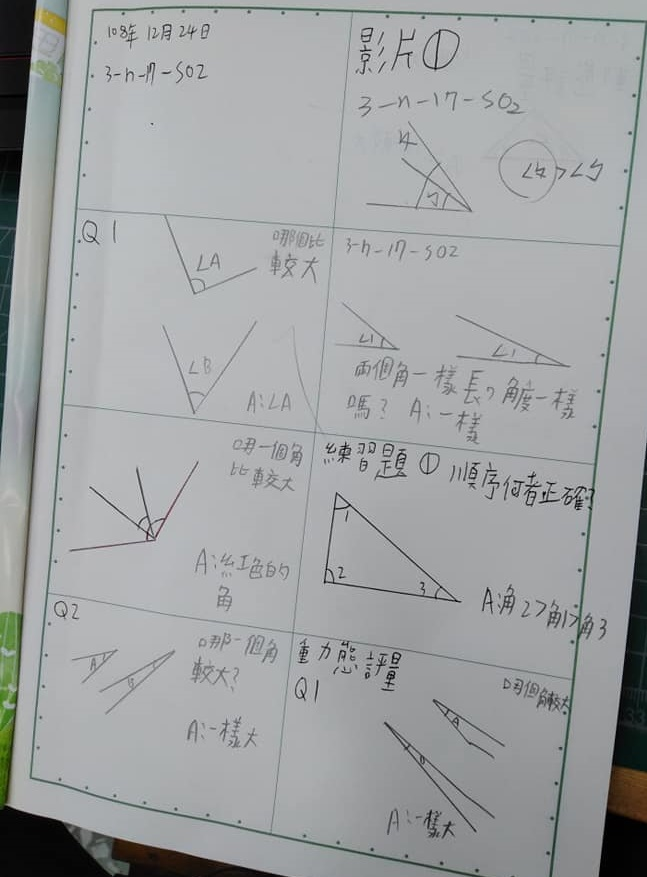 108年12月24日
3-n-17-S02
影片①
3-n-17-S02
ㄅ
∠ㄆ>∠ㄅ
Q1
哪個比
較大
∠A
∠B
A:∠A
3-n-17-S02
∠1
∠1
兩個角一樣長,角度一樣
嗎? A:一樣
哪一個角
比較大
A:紅色的
角
練習題① 順序何者正確?
1
2
3
A:角2>角1>角3
Q2
哪一個角
較大?
A
B
A:一樣大
動態評量
Q1
哪個角較大
A
B
A:一樣大